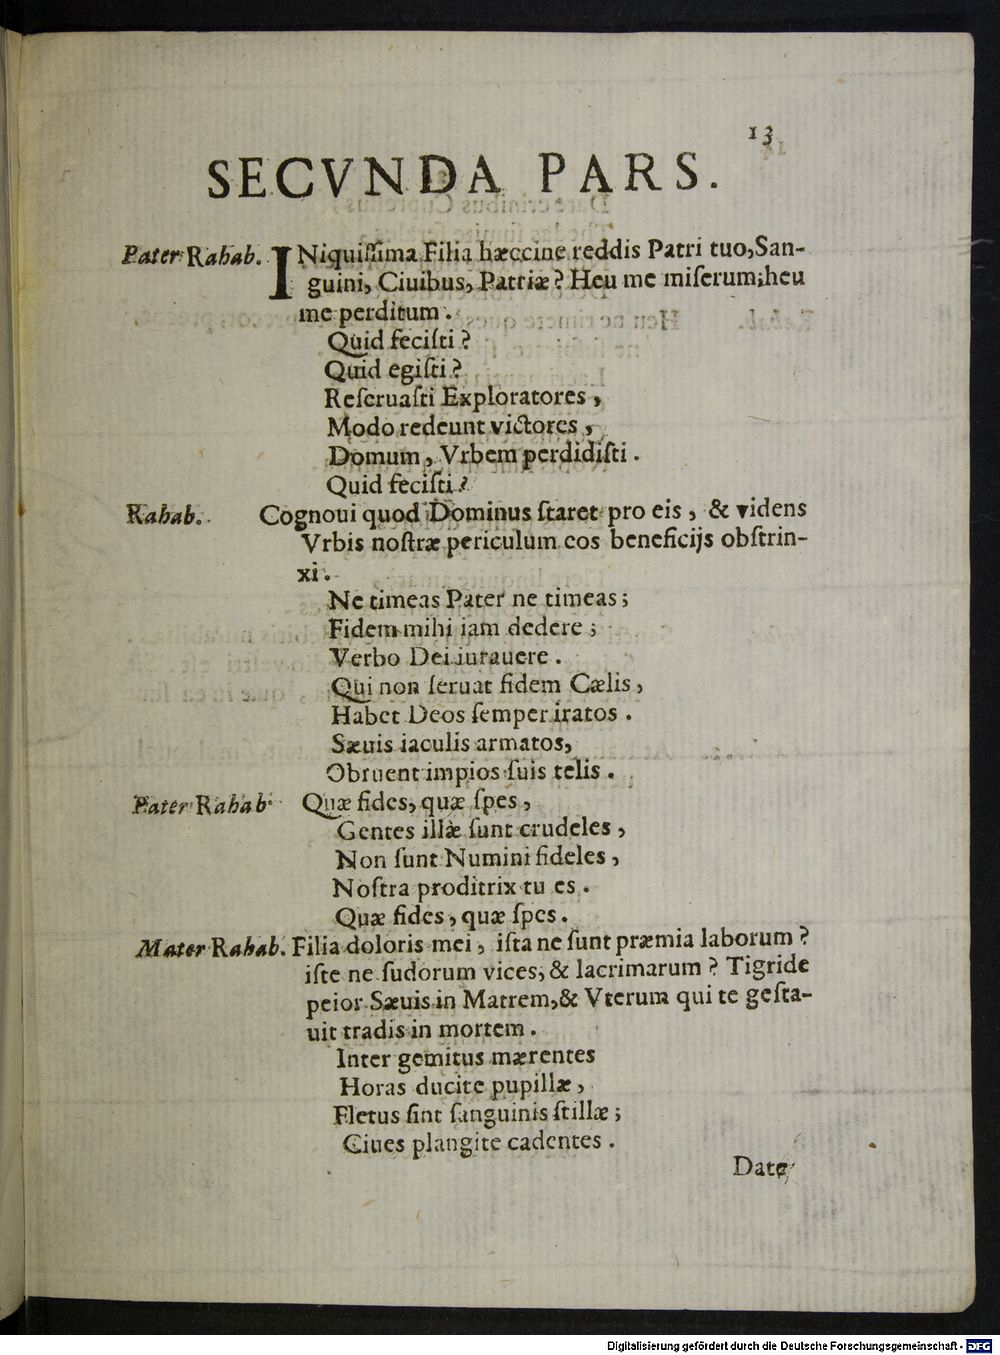 13
SECVNDA PARS.
Pater Rahab. INiquiſſima Filia hæccine reddis Patri tuo, San-
guini, Ciuibus, Patriæ? Heu me miſerum; heu
me perditum.
Quid feciſti?
Quid egiſti?
Reſeruaſti Exploratores,
Modo redeunt victores,
Domum, Vrbem perdidiſti.
Quid feciſti?
Rahab. Cognoui quod Dominus ſtaret pro eis, & videns
Vrbis noſtræ periculum eos beneficijs obſtrin-
xi.
Ne timeas Pater ne timeas;
Fidem mihi iam dedere;
Verbo Dei iurauere.
Qui non ſeruat fidem Cælis,
Habet Deos ſemper iratos.
Sæuis iaculis armatos,
Obruent impios ſuis telis.
Pater Rahab. Quæ fides, quæ ſpes,
Gentes illæ ſunt crudeles,
Non ſunt Numini fideles,
Noſtra proditrix tu es.
Quæ fides, quæ ſpes.
Mater Rahab. Filia doloris mei, iſta ne ſunt præmia laborum?
iſte ne ſudorum vices, & lacrimarum? Tigride
peior Sæuis in Matrem, & Vterum qui te geſta-
uit tradis in mortem.
Inter gemitus mærentes
Horas ducite pupillæ,
Fletus ſint ſanguinis ſtillæ;
Ciues plangite cadentes.
Date
Digitalisierung gefördert durch die Deutsche Forschungsgemeinschaft - DFG